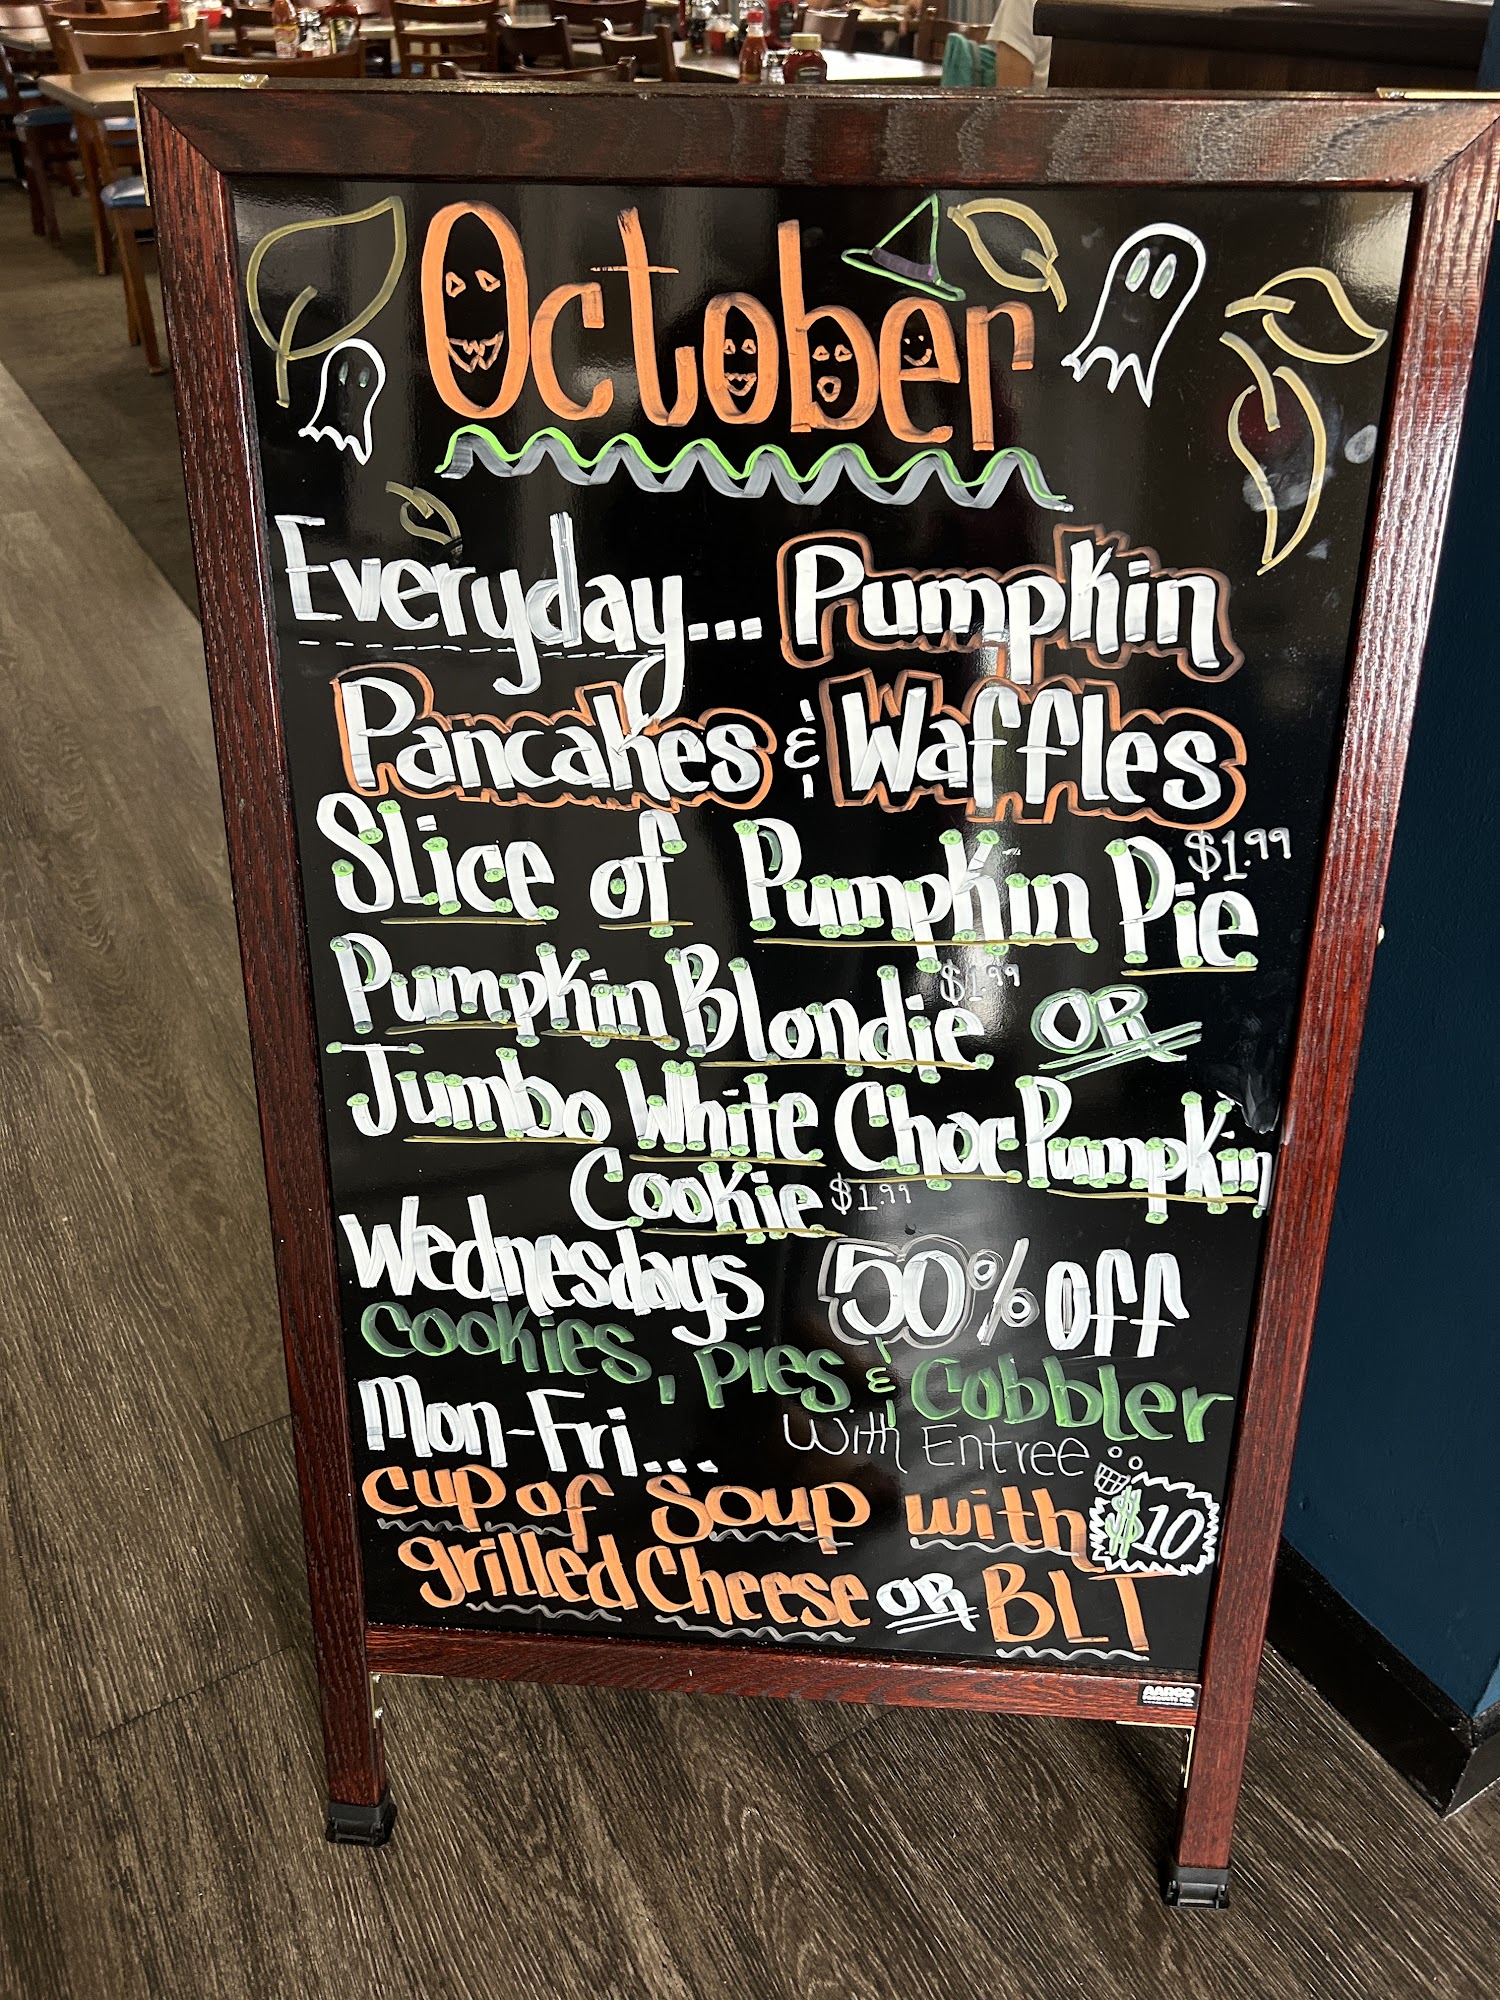 October
Everyday... Pumpkin
Pancakes & Waffles
Slice of Pumpkin Pie $1.99
Pumpkin Blondie $1.99 OR
Jumbo White Choc Pumpkin
Cookie $1.99
Wednesdays 50% off
Cookies, Pies & Cobbler
With Entree
Mon-Fri...
Cup of Soup with $10
grilled Cheese OR BLT
AARCO
PRODUCTS INC.